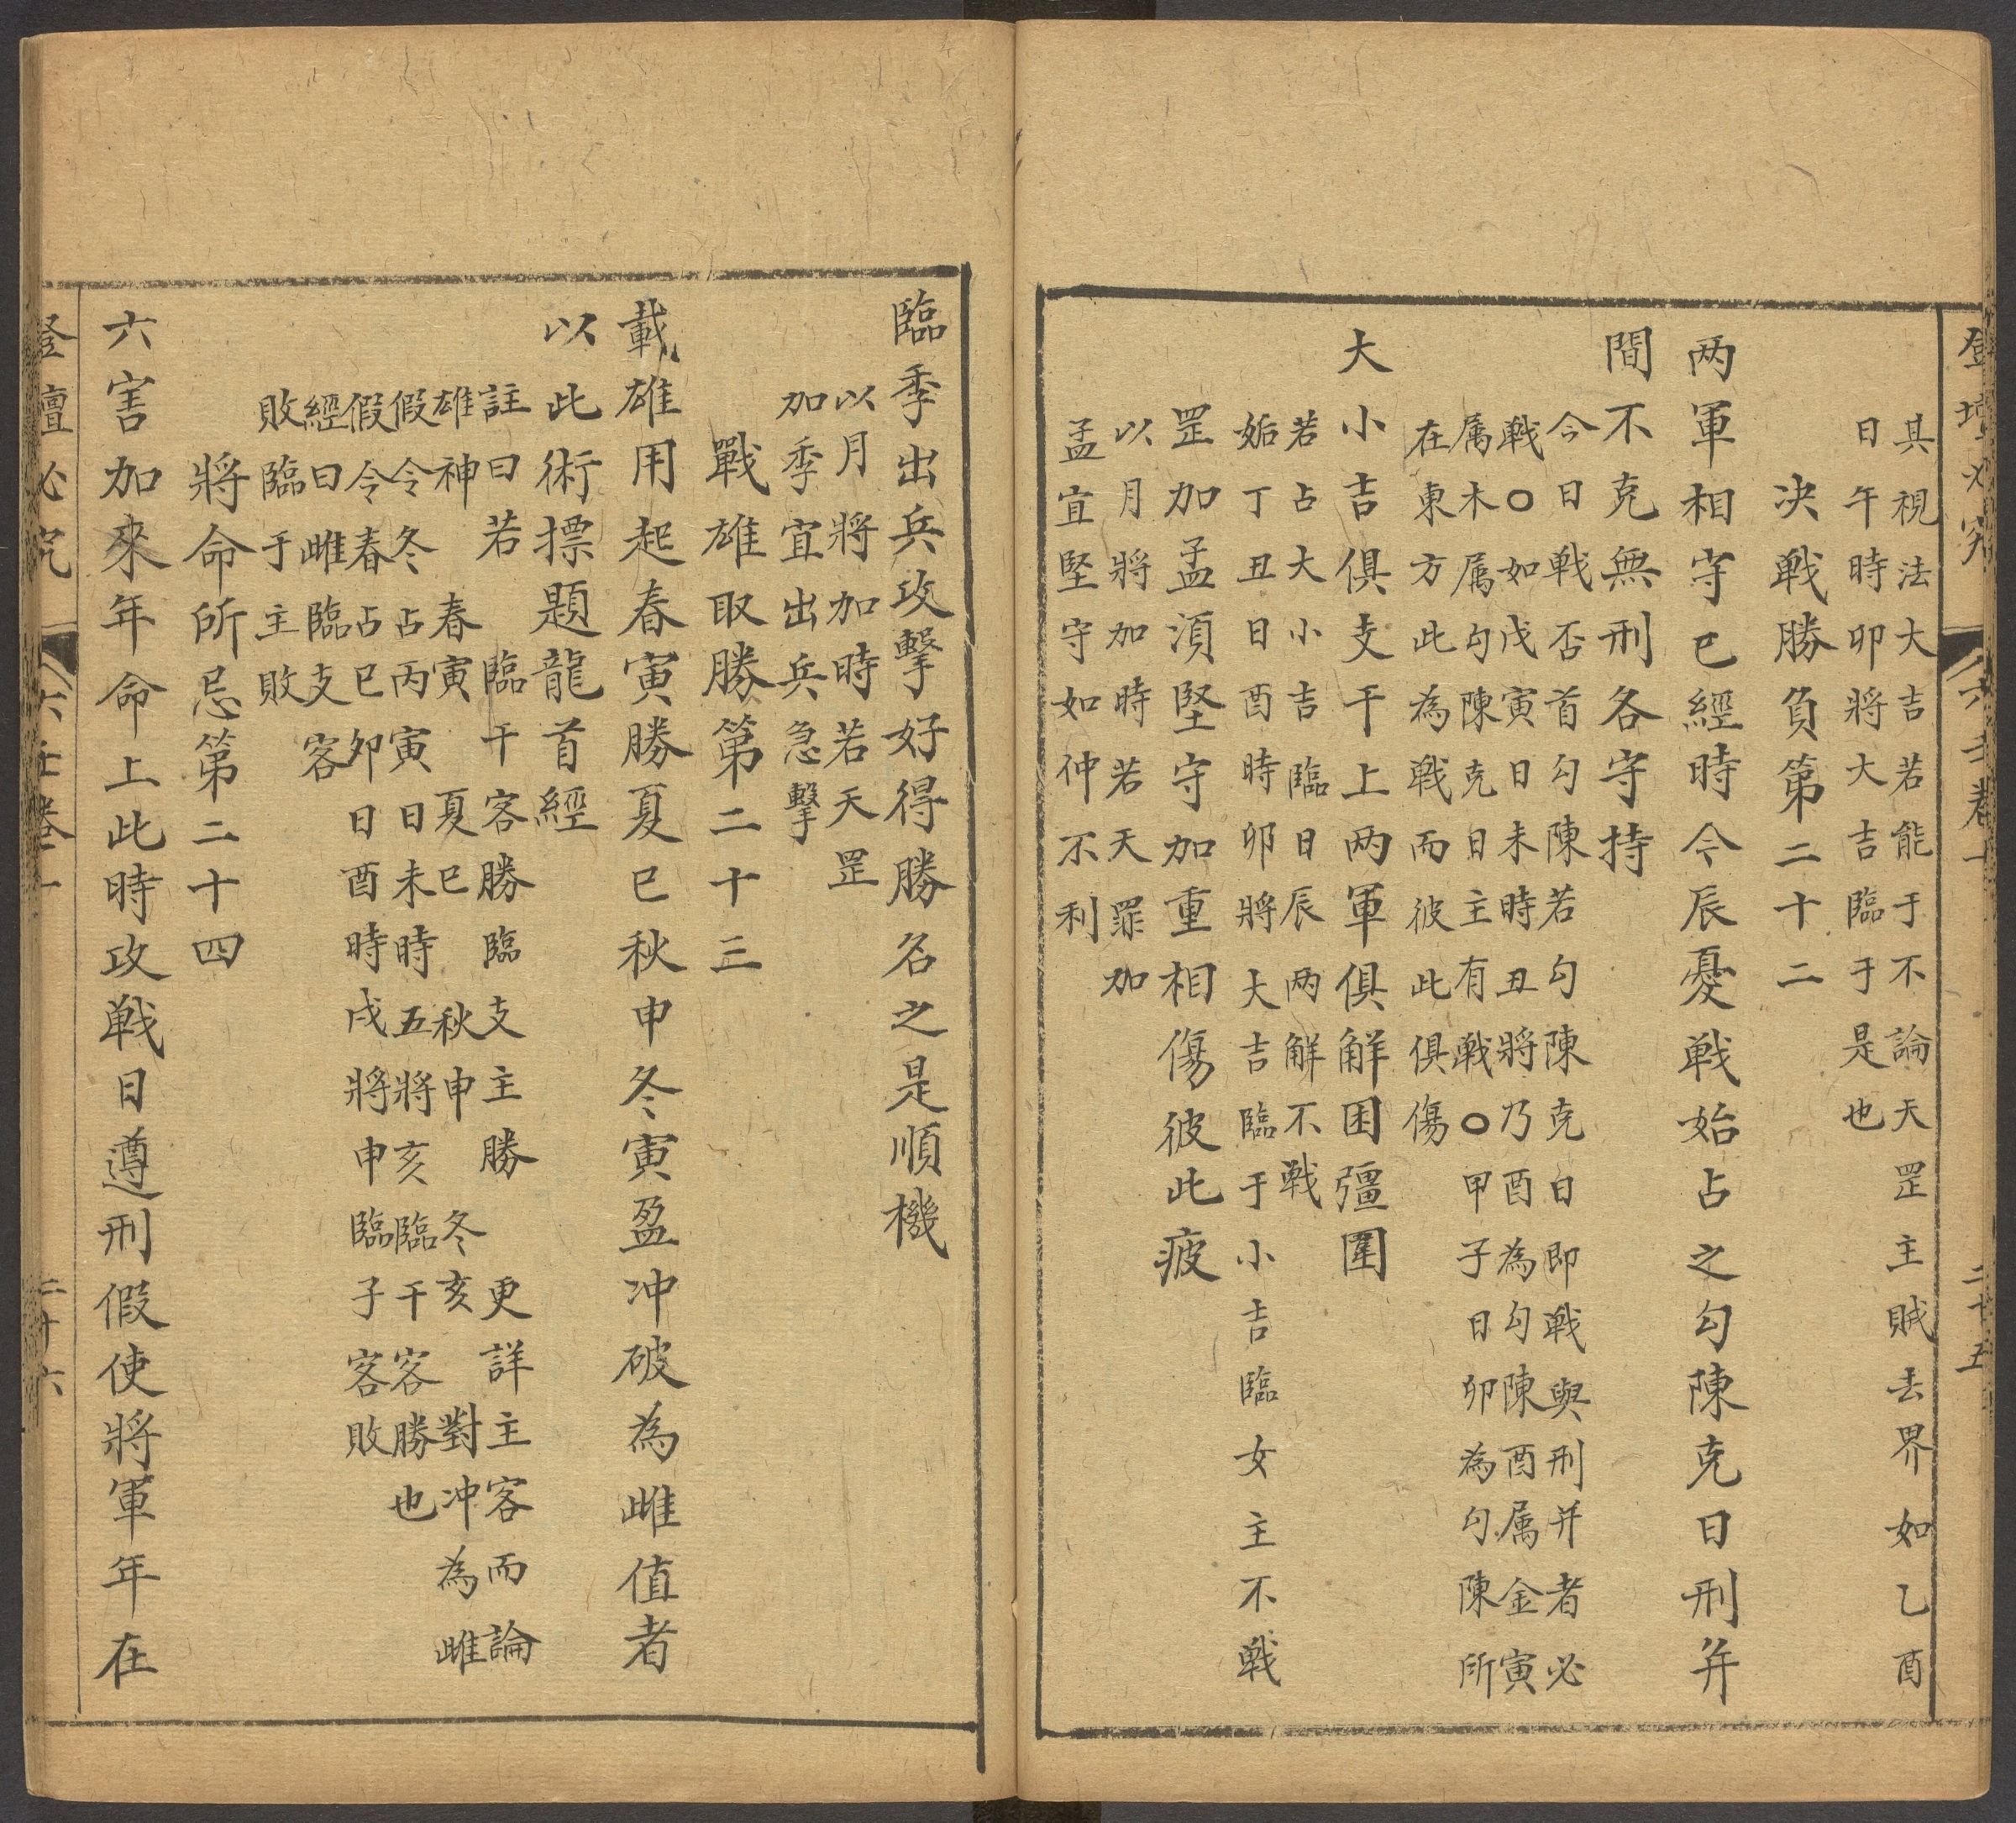 登壇必究 六壬卷十一 二十五
具視法大吉若能于不論天罡主賊去界如乙酉
日午時卯將大吉臨于是也
决戰勝負第二十二
两軍相守已經時今辰憂戰始占之勾陳克日刑并
間不克無刑各守持
今日戰否首勾陳若勾陳克日即戰與刑并者必
戰○如戊寅日未時丑將乃酉為勾陳酉属金寅
属木属勾陳克日主有戰○甲子日卯為勾陳所
在東方此為戰而彼此俱傷
大小吉俱支干上两軍俱解困彊圍
若占大小吉臨日辰两解不戰
姤丁丑日酉時卯將大吉臨于小吉臨女主不戰
罡加孟湏堅守加重相傷彼此疲
以月將加時若天罪加
孟宜堅守如仲不利
臨季出兵攻擊好得勝名之是順機
以月將加時若天罡
加季宜出兵急擊
戰雄取勝第二十三
載雄用起春寅勝夏巳秋申冬寅盈冲破為雌值者
以此術摽題龍首經
註曰若臨干客勝臨支主勝更詳主客而論
雄神春寅夏巳秋申冬亥對冲為雌
假令冬占丙寅日未時五將亥臨干客勝也
假令春占巳卯日酉時戌將申臨子客敗
經曰雌臨支客
敗臨于主敗
將命所忌第二十四
六害加來年命上此時攻戰日遵刑假使將軍年在
登壇必究 六壬卷十一 二十六